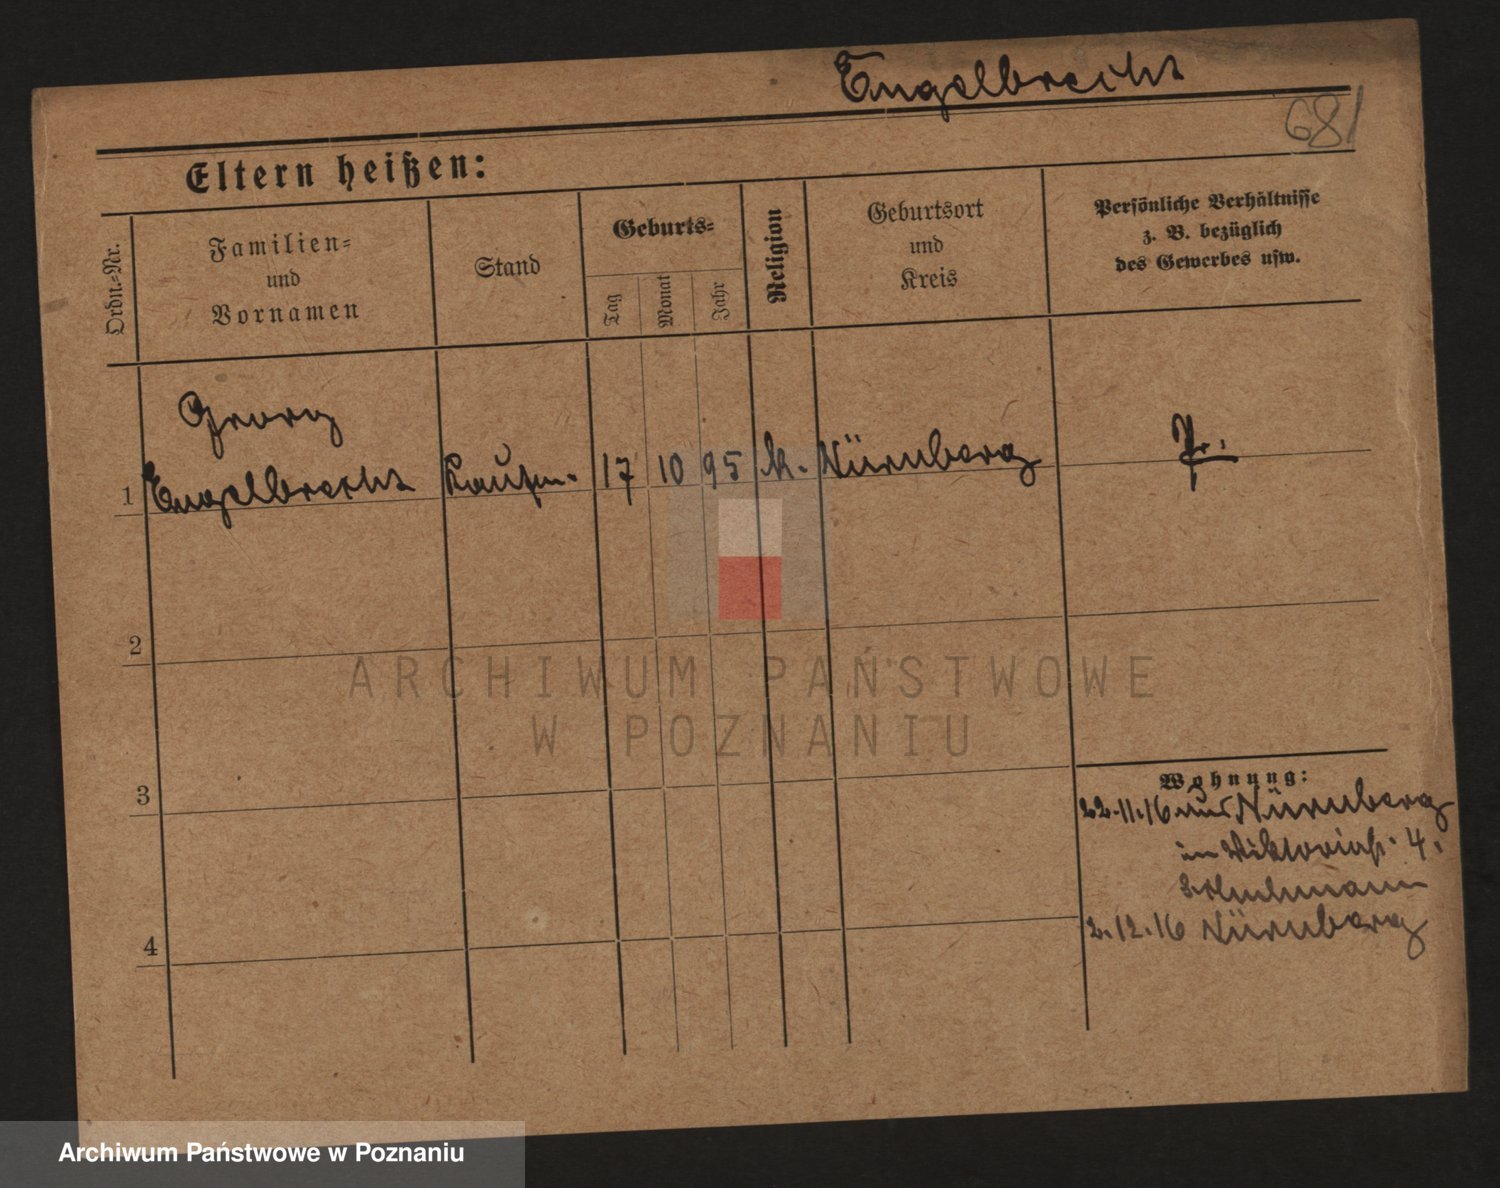 Engelbrecht
681
Eltern heißen:
Ordn.-Nr.
Familien-
und
Vornamen
Stand
Geburts-
Tag
Monat
Jahr
Religion
Geburtsort
und
Kreis
Persönliche Verhältnisse
z. B. bezüglich
des Gewerbes usw.
Georg
1 Engelbrecht Kaufm. 17 10 95 k. Nürnberg Pr.
2
3
4
Wohnung:
22.11.16 aus Nürnberg
in Viktoriastr. 4.
2.12.16 Nürnberg
ARCHIWUM PAŃSTWOWE
W POZNANIU
Archiwum Państwowe w Poznaniu